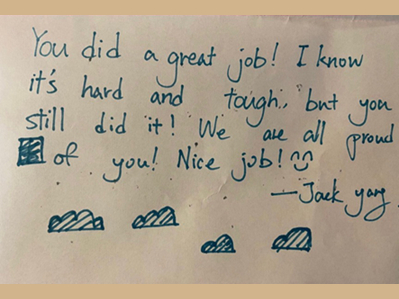 You did a great job! I know
it's hard and tough, but you
still did it! We are all proud
of you! Nice job!
—Jack yang